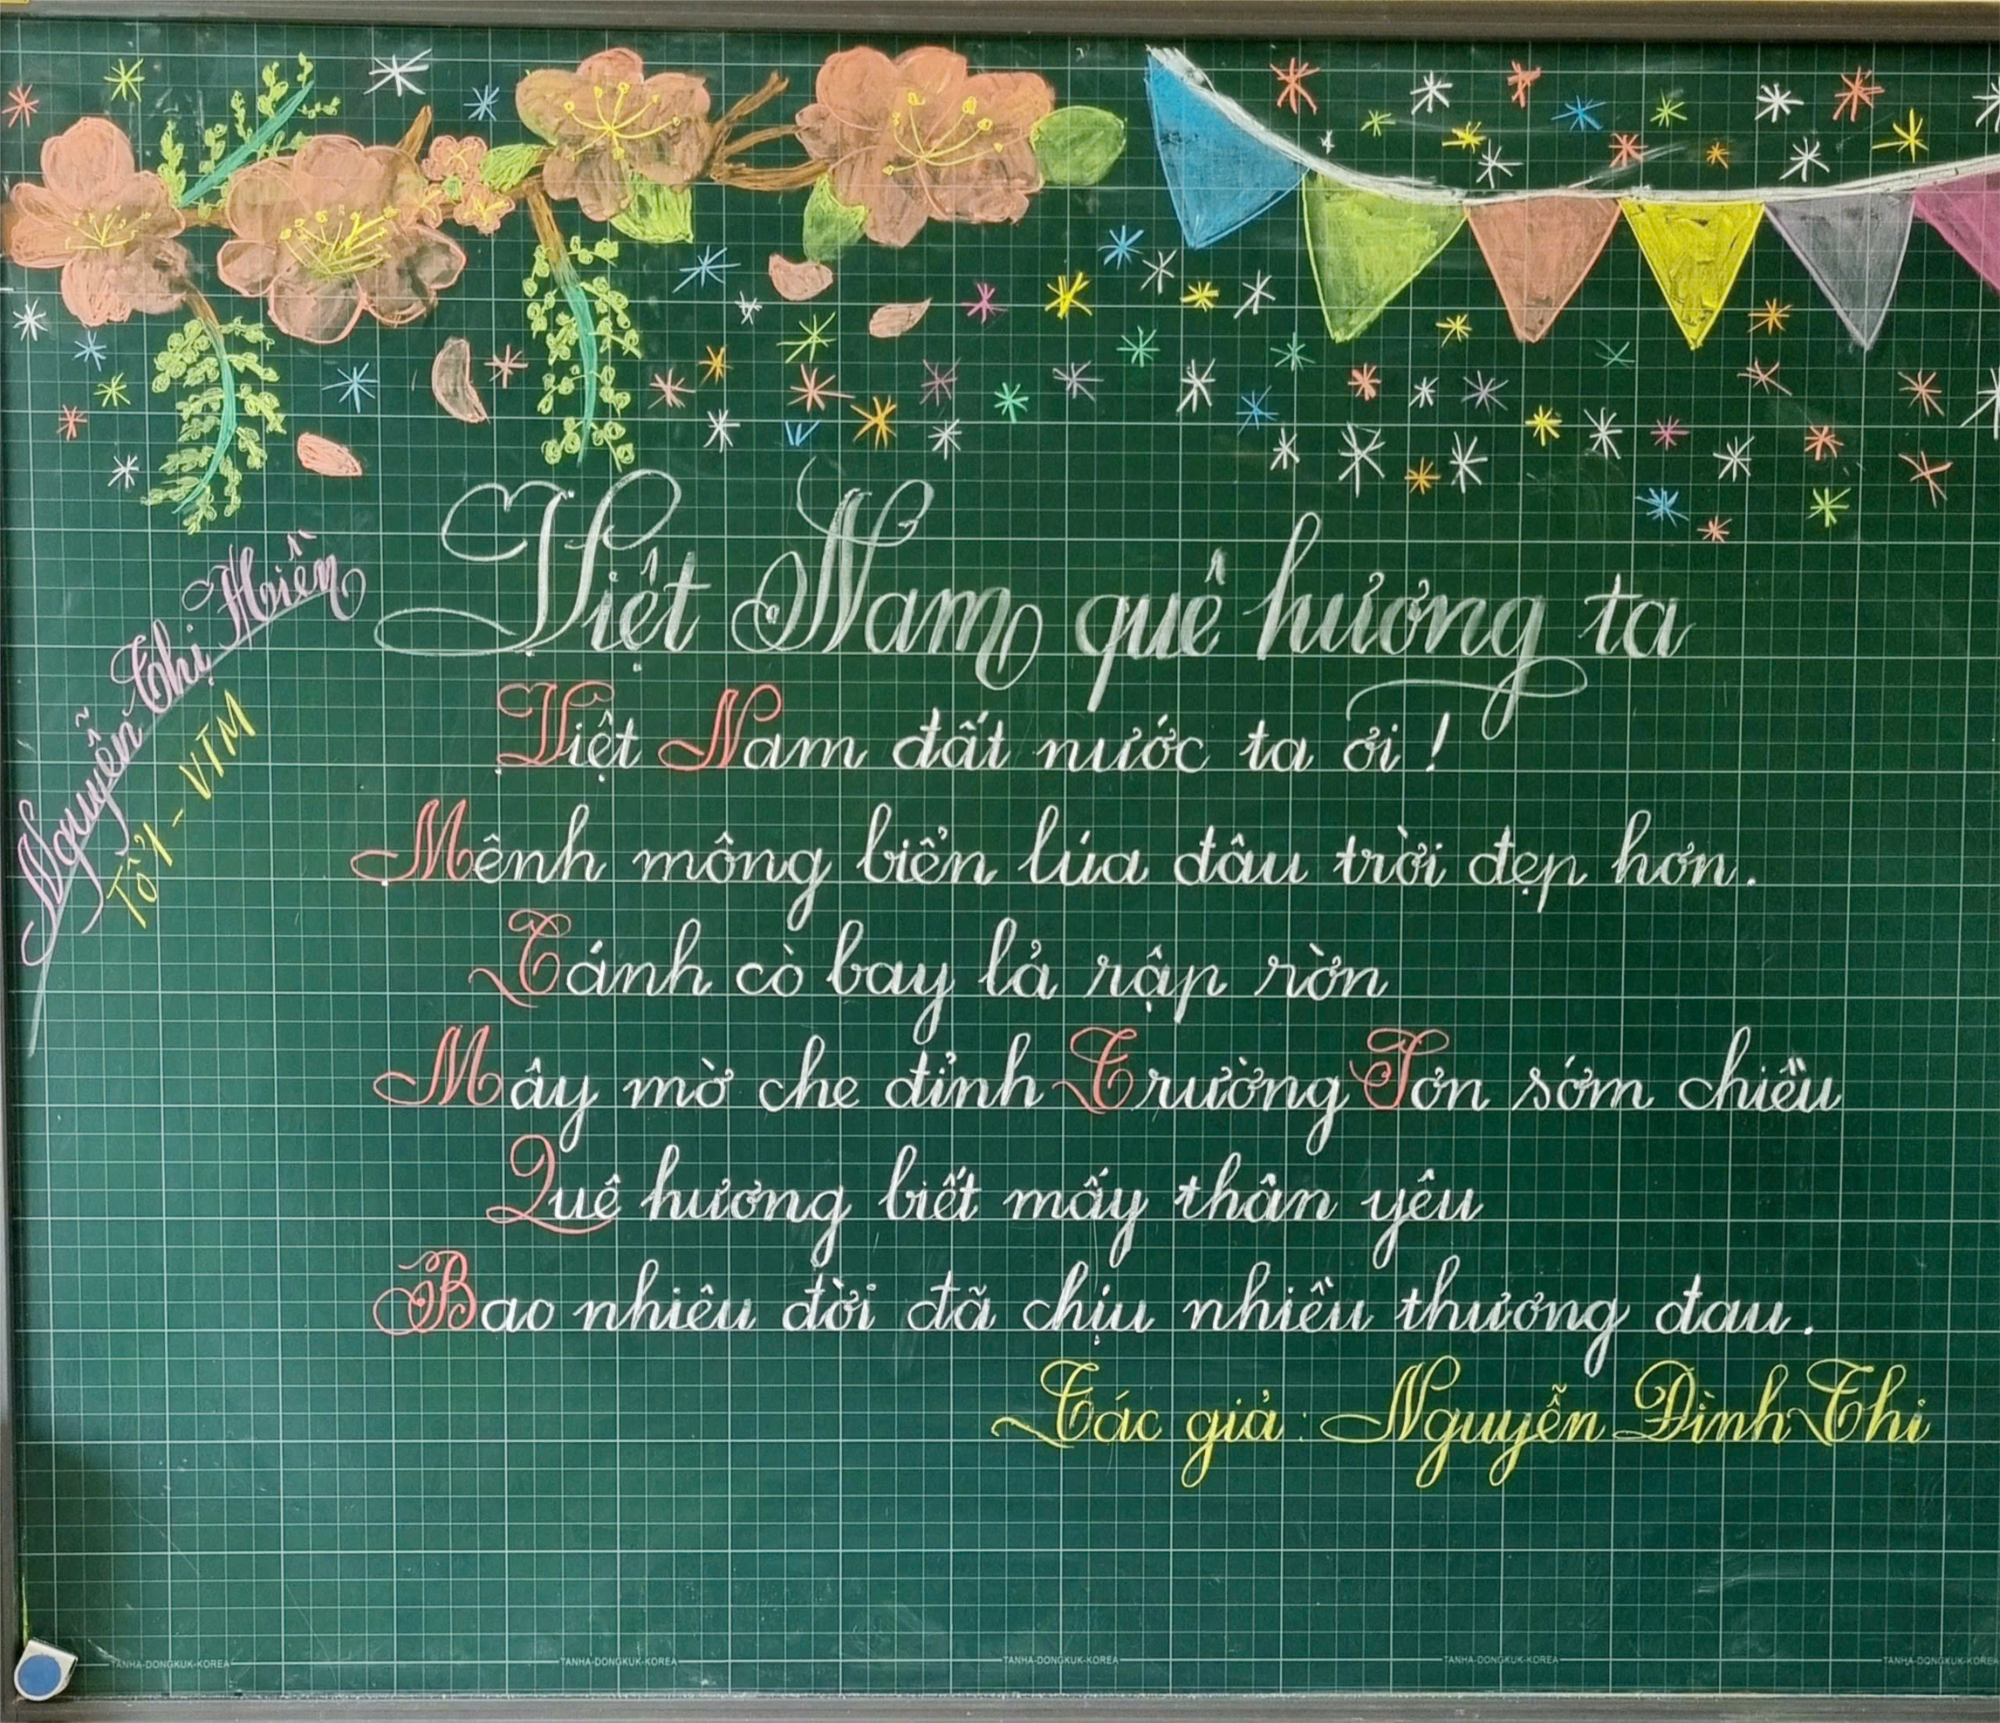 Việt Nam quê hương ta
Việt Nam đất nước ta ơi !
Mênh mông biển lúa đâu trời đẹp hơn.
Cánh cò bay lả rập rờn
Mây mờ che đỉnh Trường Sơn sớm chiều
Quê hương biết mấy thân yêu
Bao nhiêu đời đã chịu nhiều thương đau.
Tác giả: Nguyễn Đình Thi
Nguyễn Thị Hiền
Tổ 1 - VTM
TANHA-DONGKUK-KOREA TANHA-DONGKUK-KOREA TANHA-DONGKUK-KOREA TANHA-DONGKUK-KOREA TANHA-DONGKUK-KOREA